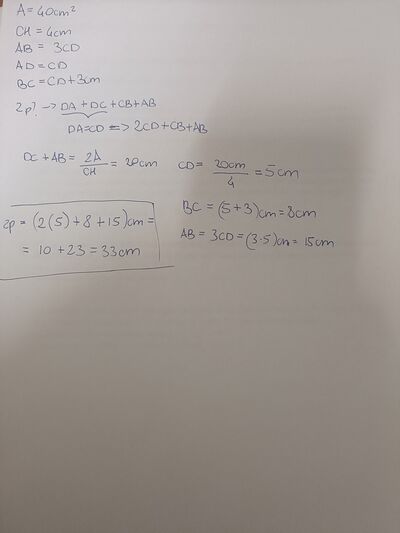 A = 40cm²
CH = 4cm
AB = 3CD
AD = CD
BC = CD + 3cm
2p? → DA + DC + CB + AB
DA = CD => 2CD + CB + AB
DC + AB = 2A/CH = 20cm CD = 20cm/4 = 5cm
BC = (5 + 3)cm = 8cm
AB = 3CD = (3·5)cm = 15cm
2p = (2(5) + 8 + 15)cm =
= 10 + 23 = 33cm